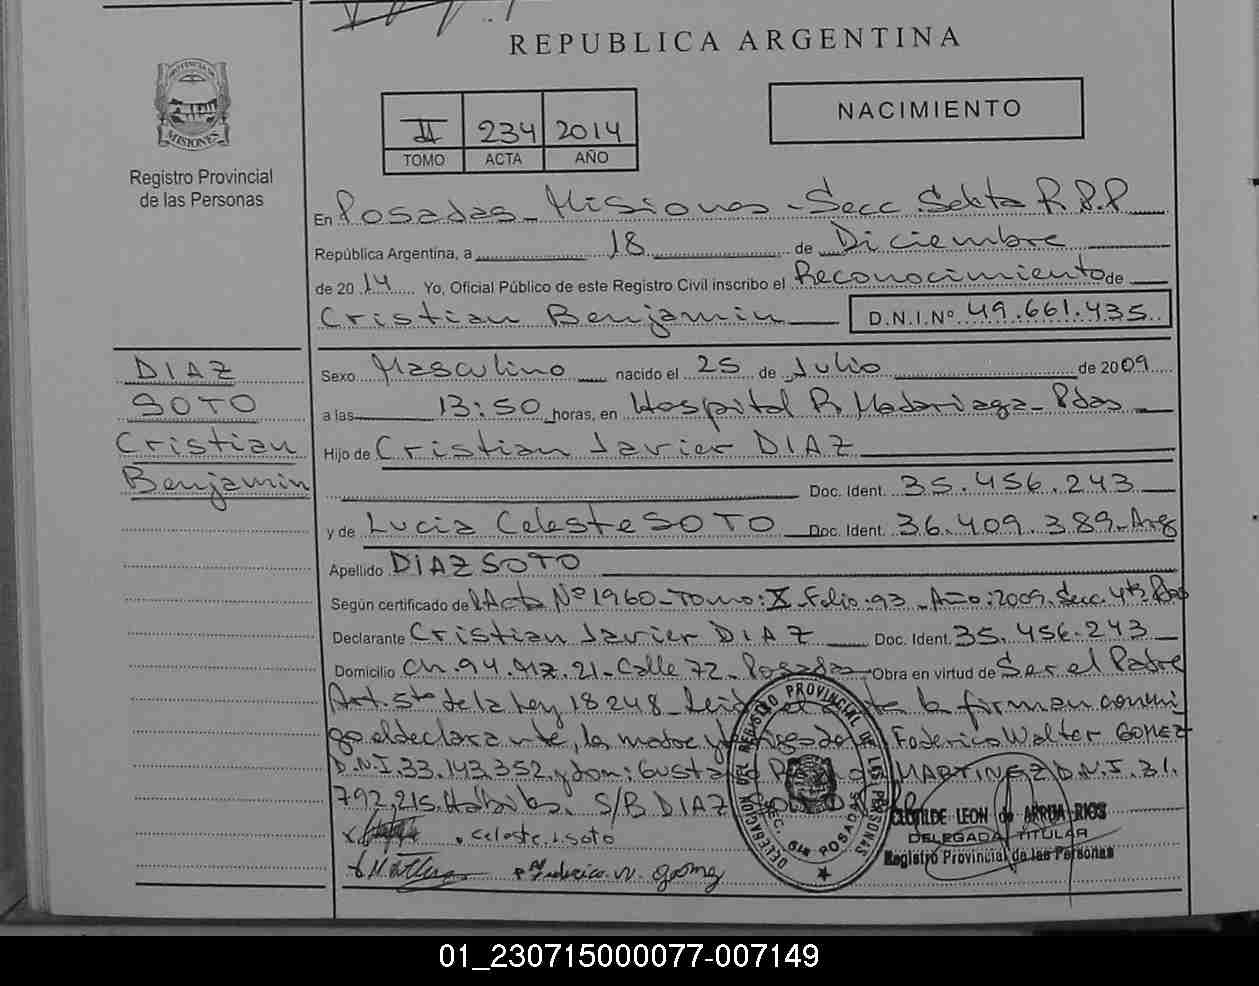 REPUBLICA ARGENTINA
PROVINCIA DE
MISIONES
Registro Provincial
de las Personas
II 234 2014
TOMO ACTA AÑO
NACIMIENTO
En Posadas - Misiones - Secc. Sexta R.P.P
República Argentina, a 18 de Diciembre
de 2014 Yo, Oficial Público de este Registro Civil inscribo el Reconocimiento de
Cristian Benjamin D.N.I.Nº 49.661.435
DIAZ
SOTO
Cristian
Benjamin
Sexo Masculino nacido el 25 de Julio de 2009
a las 13:50 horas, en Hospital R. Madariaga - Pdas
Hijo de Cristian Javier DIAZ
Doc. Ident. 35.456.243
y de Lucia Celeste SOTO Doc. Ident. 36.409.389 - Arg
Apellido DIAZ SOTO
Según certificado de Acta Nº 1960 - Tomo: X - Folio: 93 - Año: 2009. Secc. 4ta. Pdas
Declarante Cristian Javier DIAZ Doc. Ident. 35.456.243
Domicilio Ch. 94. Mz. 21 - Calle 72 - Posadas Obra en virtud de Ser el Padre
Art. 5to de la Ley 18248 - la firman conmi-
go el declarante, la madre y Federico Walter GOMEZ
D.N.I. 33.143.352 y don: MARTINEZ D.N.I. 31.
792.215. Hábiles. S/B DIAZ
celeste soto
Federico W. Gomez
DELEGACION DEL REGISTRO PROVINCIAL DE LAS PERSONAS
SEC. 6ta POSADAS
CLOTILDE LEON de ARRUA RIOS
DELEGADA TITULAR
Registro Provincial de las Personas
01_230715000077-007149